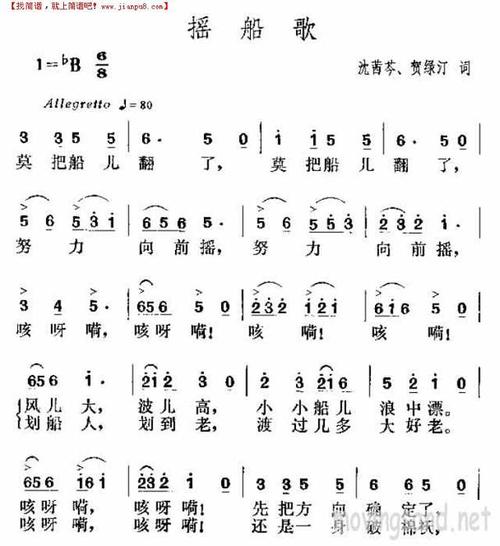 【找简谱，就上简谱吧！】www.jianpu8.com
摇船歌
1=♭B 6/8
沈茜芩、贺绿汀 词
Allegretto ♩=80
3 3 5 5 | 6· 5 0 | 1 1 5 5 | 6· 5 0 |
莫把船儿翻了，莫把船儿翻了，
5 6 5 3 1 | 6 5 6 5· | 5 6 5 5 3 | 2 3 2 1· |
努力向前摇，努力向前摇，
3 4 5· | 6 5 6 5 0 | 2 3 1 2 1 | 6 5 1 5 0 |
咳呀嗬，咳呀嗬！咳嗬！咳嗬！
6 5 6 1· | 2 1 2 2 0 | 3 2 1 2 | 5 6 5· |
风儿大，波儿高，小小船儿浪中漂。
划船人，划到老，渡过几多大好老。
6 5 6 5 6 1 6 1 | 2 3 2 1 0 | 3 2 1 2 | 5 6 1 0 |
咳呀嗬，咳呀嗬！先把方向确定了，
咳呀嗬，咳呀嗬！还是一身破棉袄，